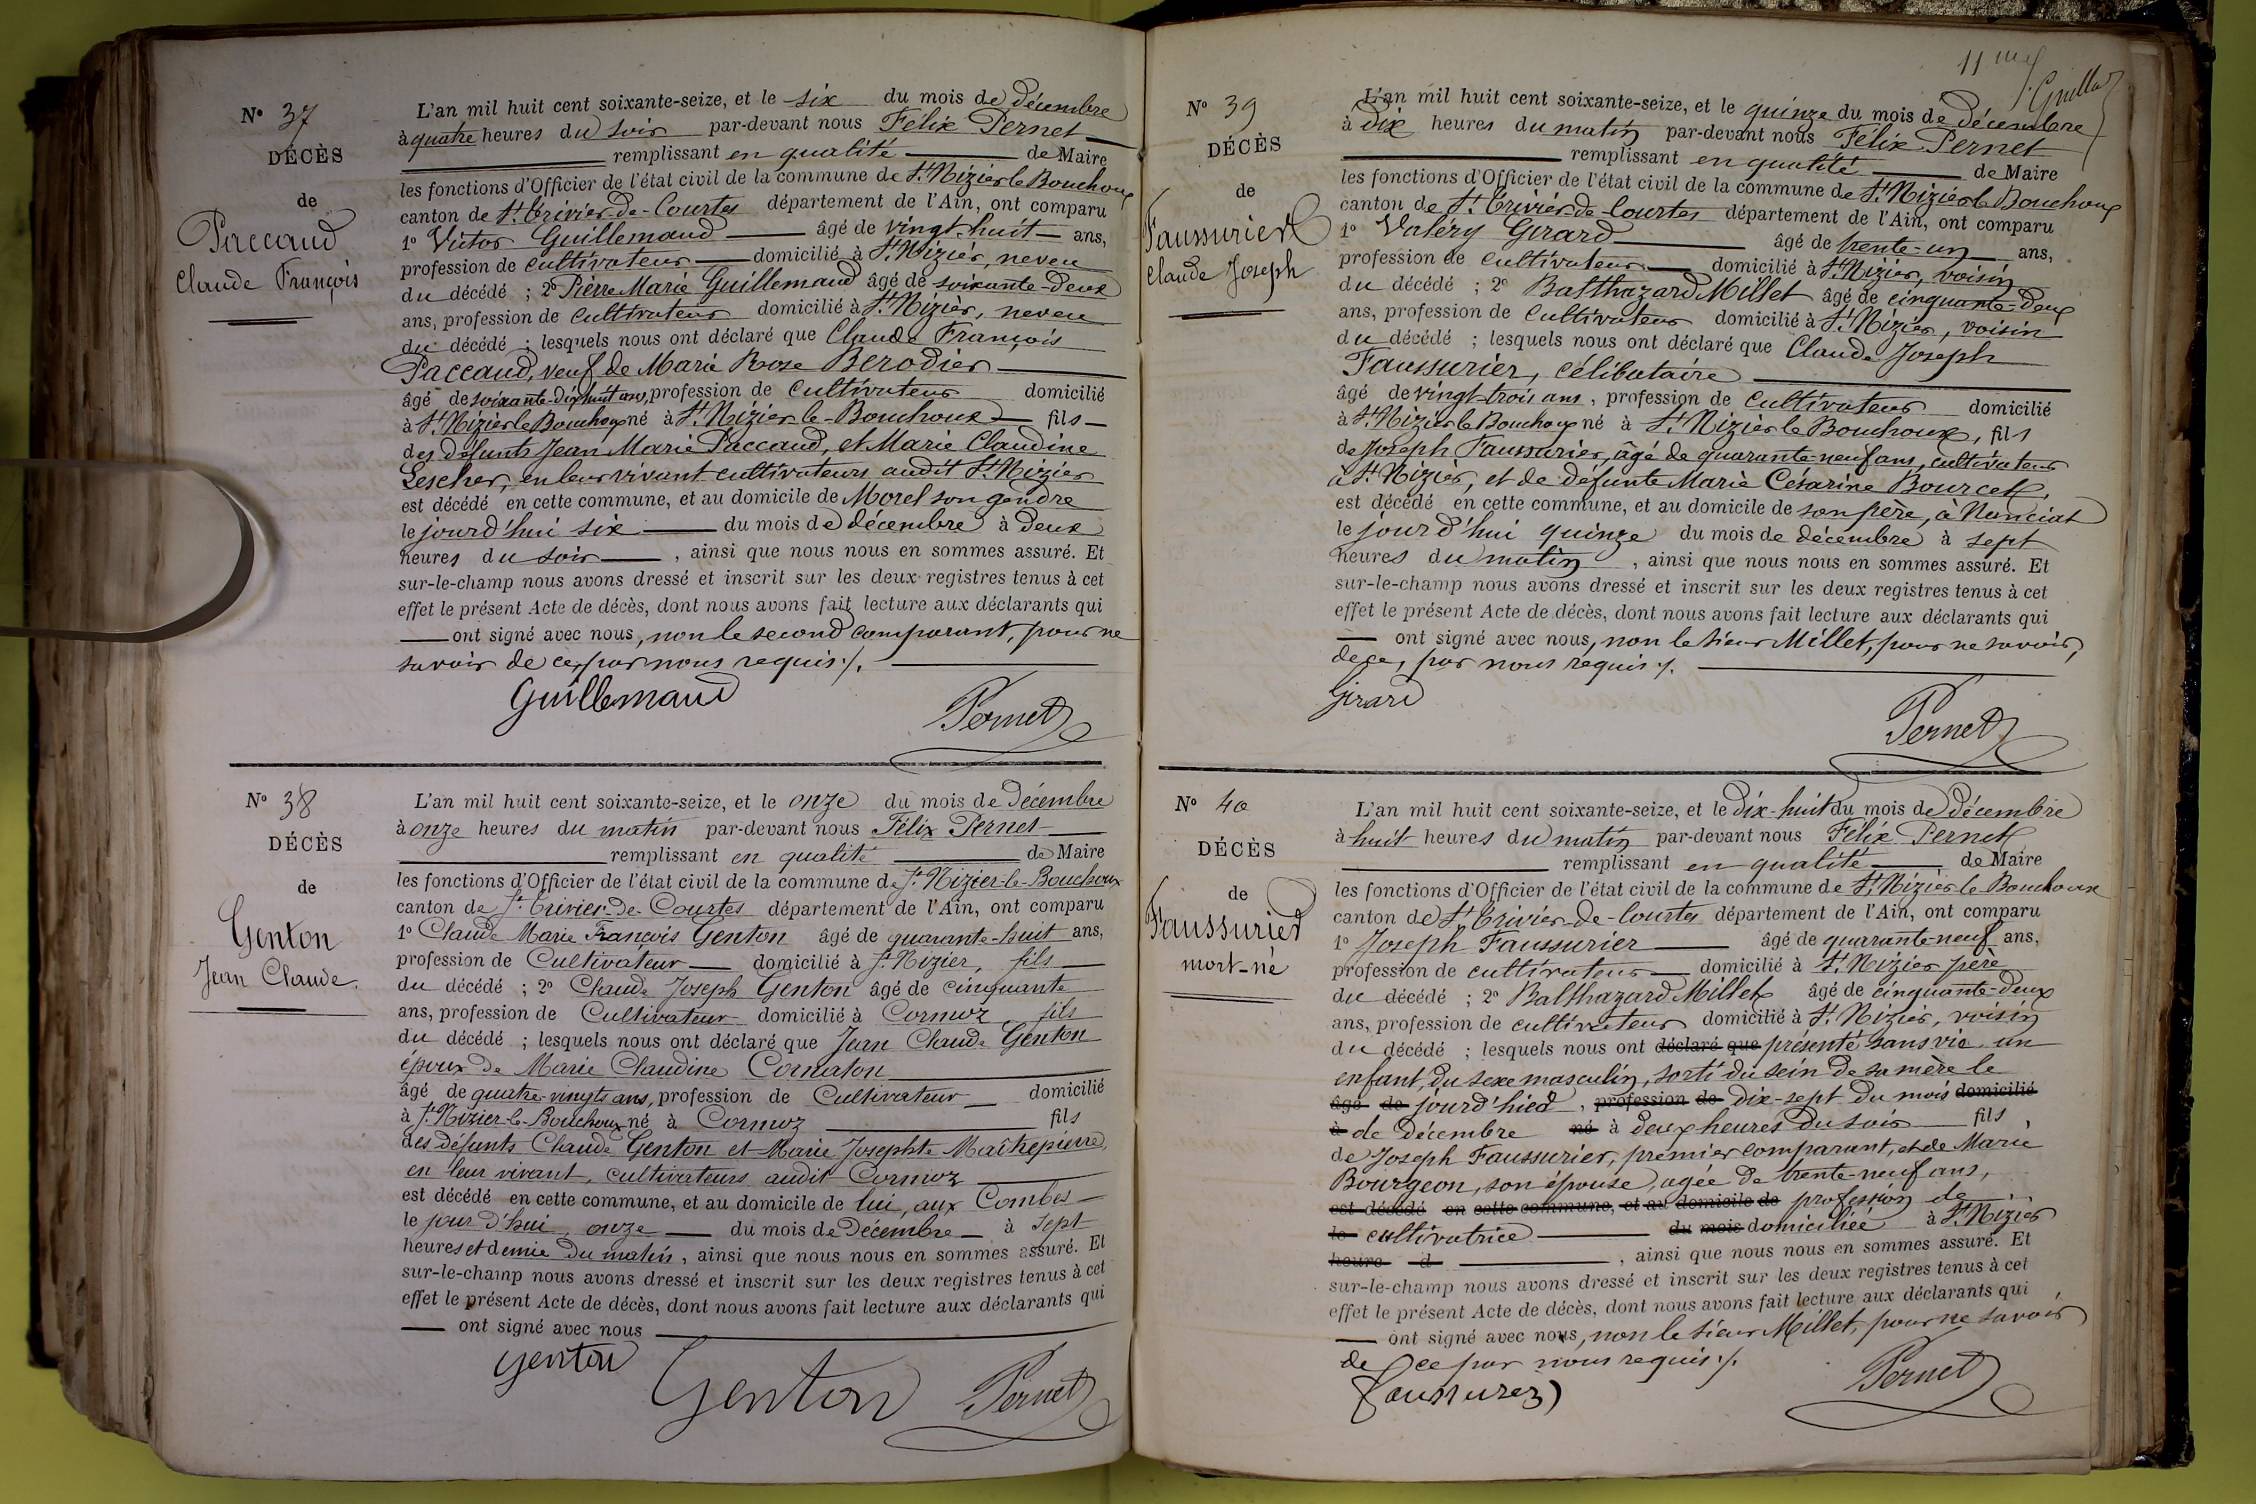 N° 37
DÉCÈS
de
Paccaud
Claude François
L'an mil huit cent soixante-seize, et le six du mois de décembre
à quatre heures du soir par-devant nous Félix Pernet
remplissant en qualité de Maire
les fonctions d'Officier de l'état civil de la commune de St. Nizier le Bouchoux
canton de St. Trivier-de-Courtes département de l'Ain, ont comparu
1° Victor Guillemaud âgé de vingt-huit ans,
profession de cultivateur domicilié à St. Nizier, neveu
du décédé ; 2° Pierre Marie Guillemaud âgé de soixante-deux
ans, profession de cultivateur domicilié à St. Nizier, neveu
du décédé ; lesquels nous ont déclaré que Claude François
Paccaud, veuf de Marie Roze Berodier
âgé de soixante-dix huit ans, profession de cultivateur domicilié
à St. Nizier le Bouchoux né à St. Nizier-le-Bouchoux fils
des défunts Jean Marie Paccaud, et Marie Claudine
Lescher, en leur vivant cultivateurs audit St. Nizier
est décédé en cette commune, et au domicile de Morel son gendre
le jourd'hui six du mois de décembre à deux
heures du soir , ainsi que nous nous en sommes assuré. Et
sur-le-champ nous avons dressé et inscrit sur les deux registres tenus à cet
effet le présent Acte de décès, dont nous avons fait lecture aux déclarants qui
ont signé avec nous, non le second comparant, pour ne
savoir de ce, par nous requis ./.
Guillemaud Pernet
N° 38
DÉCÈS
de
Genton
Jean Claude.
L'an mil huit cent soixante-seize, et le onze du mois de Décembre
à onze heures du matin par-devant nous Félix Pernet
remplissant en qualité de Maire
les fonctions d'Officier de l'état civil de la commune de St. Nizier-le-Bouchoux
canton de St. Trivier-de-Courtes département de l'Ain, ont comparu
1° Claude Marie François Genton âgé de quarante-huit ans,
profession de Cultivateur domicilié à St. Nizier, fils
du décédé ; 2° Claude Joseph Genton âgé de cinquante
ans, profession de Cultivateur domicilié à Cormoz fils
du décédé ; lesquels nous ont déclaré que Jean Claude Genton
époux de Marie Claudine Cornaton
âgé de quatre-vingts ans, profession de Cultivateur domicilié
à St. Nizier-le-Bouchoux né à Cormoz fils
des défunts Claude Genton et Marie Josephte Maîtrepierre,
en leur vivant, cultivateurs audit Cormoz
est décédé en cette commune, et au domicile de lui, aux Combes
le jour d'hui onze du mois de Décembre à sept
heures et demie du matin, ainsi que nous nous en sommes assuré. Et
sur-le-champ nous avons dressé et inscrit sur les deux registres tenus à cet
effet le présent Acte de décès, dont nous avons fait lecture aux déclarants qui
ont signé avec nous
Genton Genton Pernet
N° 39
DÉCÈS
de
Faussurier
Claude Joseph
L'an mil huit cent soixante-seize, et le quinze du mois de décembre
à dix heures du matin par-devant nous Félix Pernet
remplissant en qualité de Maire
les fonctions d'Officier de l'état civil de la commune de St. Nizier le Bouchoux
canton de St. Trivier de Courtes département de l'Ain, ont comparu
1° Valéry Girard âgé de trente-un ans,
profession de cultivateur domicilié à St. Nizier, voisin
du décédé ; 2° Balthazard Millet âgé de cinquante-deux
ans, profession de cultivateur domicilié à St. Nizier, voisin
du décédé ; lesquels nous ont déclaré que Claude Joseph
Faussurier, célibataire
âgé de vingt-trois ans, profession de cultivateur domicilié
à St. Nizier le Bouchoux né à St. Nizier le Bouchoux, fils
de Joseph Faussurier, âgé de quarante-neuf ans, cultivateur
à St. Nizier, et de défunte Marie Césarine Bourcet,
est décédé en cette commune, et au domicile de son père, à Nanciat
le jourd'hui quinze du mois de décembre à sept
heures du matin , ainsi que nous nous en sommes assuré. Et
sur-le-champ nous avons dressé et inscrit sur les deux registres tenus à cet
effet le présent Acte de décès, dont nous avons fait lecture aux déclarants qui
ont signé avec nous, non le sieur Millet, pour ne savoir,
de ce, par nous requis ./.
Girard Pernet
N° 40
DÉCÈS
de
Faussurier
mort-né
L'an mil huit cent soixante-seize, et le dix-huit du mois de décembre
à huit heures du matin par-devant nous Félix Pernet
remplissant en qualité de Maire
les fonctions d'Officier de l'état civil de la commune de St. Nizier le Bouchoux
canton de St. Trivier-de-Courtes département de l'Ain, ont comparu
1° Joseph Faussurier âgé de quarante neuf ans,
profession de cultivateur domicilié à St. Nizier père
du décédé ; 2° Balthazard Millet âgé de cinquante-deux
ans, profession de cultivateur domicilié à St. Nizier, voisin
du décédé ; lesquels nous ont déclaré que présenté sans vie un
enfant, du sexe masculin, sorti du sein de sa mère le
âgé de jourd'hier, profession de dix-sept du mois domicilié
à de Décembre né à deux heures du soir fils
de Joseph Faussurier, premier comparant, et de Marie
Bourgeon, son épouse, agée de trente-neuf ans,
est décédé en cette commune, et au domicile de profession de
le cultivatrice du mois domiciliée à St. Nizier
heure d , ainsi que nous nous en sommes assuré. Et
sur-le-champ nous avons dressé et inscrit sur les deux registres tenus à cet
effet le présent Acte de décès, dont nous avons fait lecture aux déclarants qui
ont signé avec nous, non le sieur Millet, pour ne savoir
de ce par nous requis ./.
Pernet